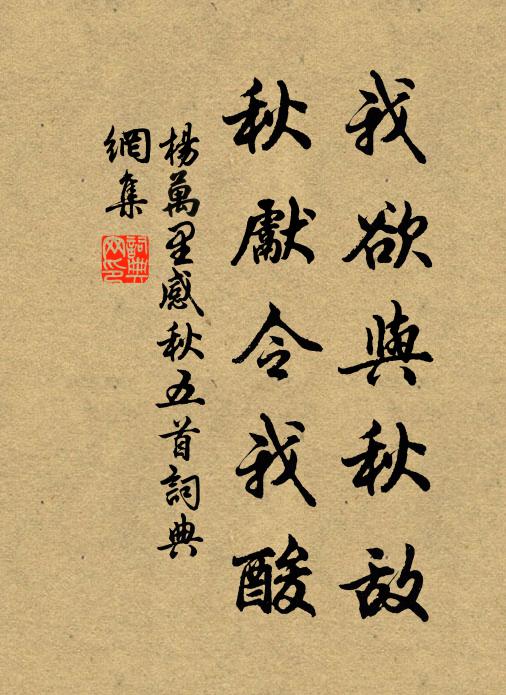 我欲與秋敌
秋獻令我酸
楊萬里感秋五首詞典
網集
詞典
网印